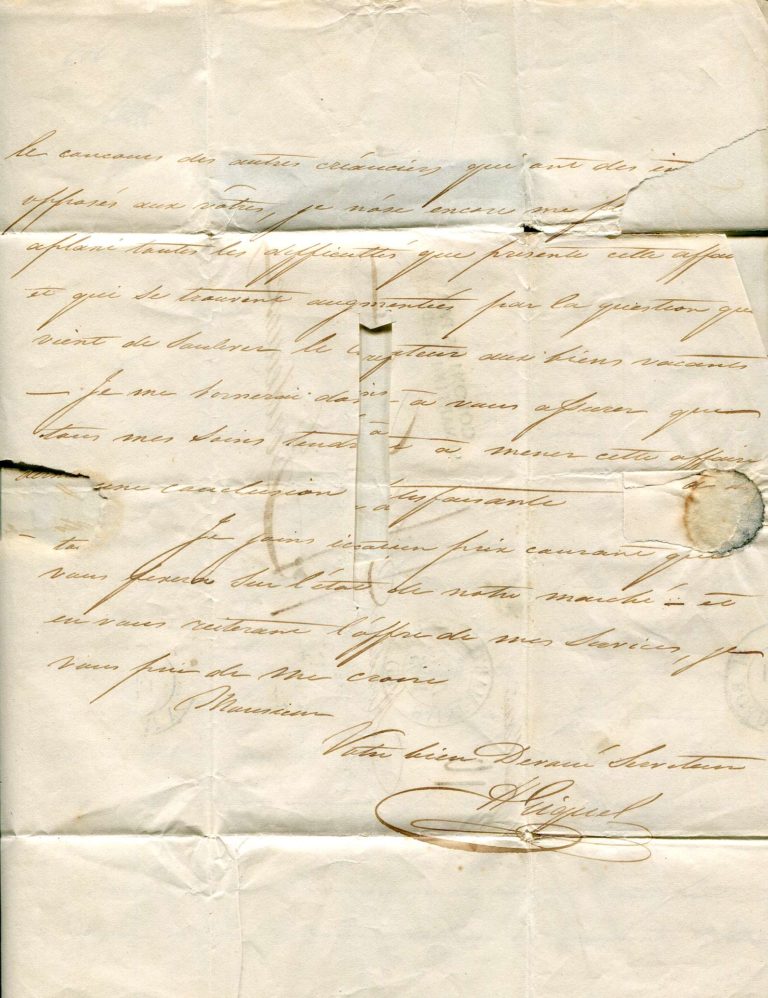 le concours des autres créanciers qui ont des in
opposés aux vôtres, je n'ose encore me f
aplani toutes les difficultés que présente cette affai
et qui se trouvent augmentées par la question que
vient de soulever le c rateur aux biens vacants
— Je me bornerai da ns à vous assurer que
tous mes soins tend t à mener cette affaire à
une conclusion tisfaisante
Je joins ici un prix courant qui
vous fixera sur l'état de notre marché — et
en vous réiterant l'offre de mes services, je
vous prie de me croire
Monsieur
Votre bien Dévoué Serviteur